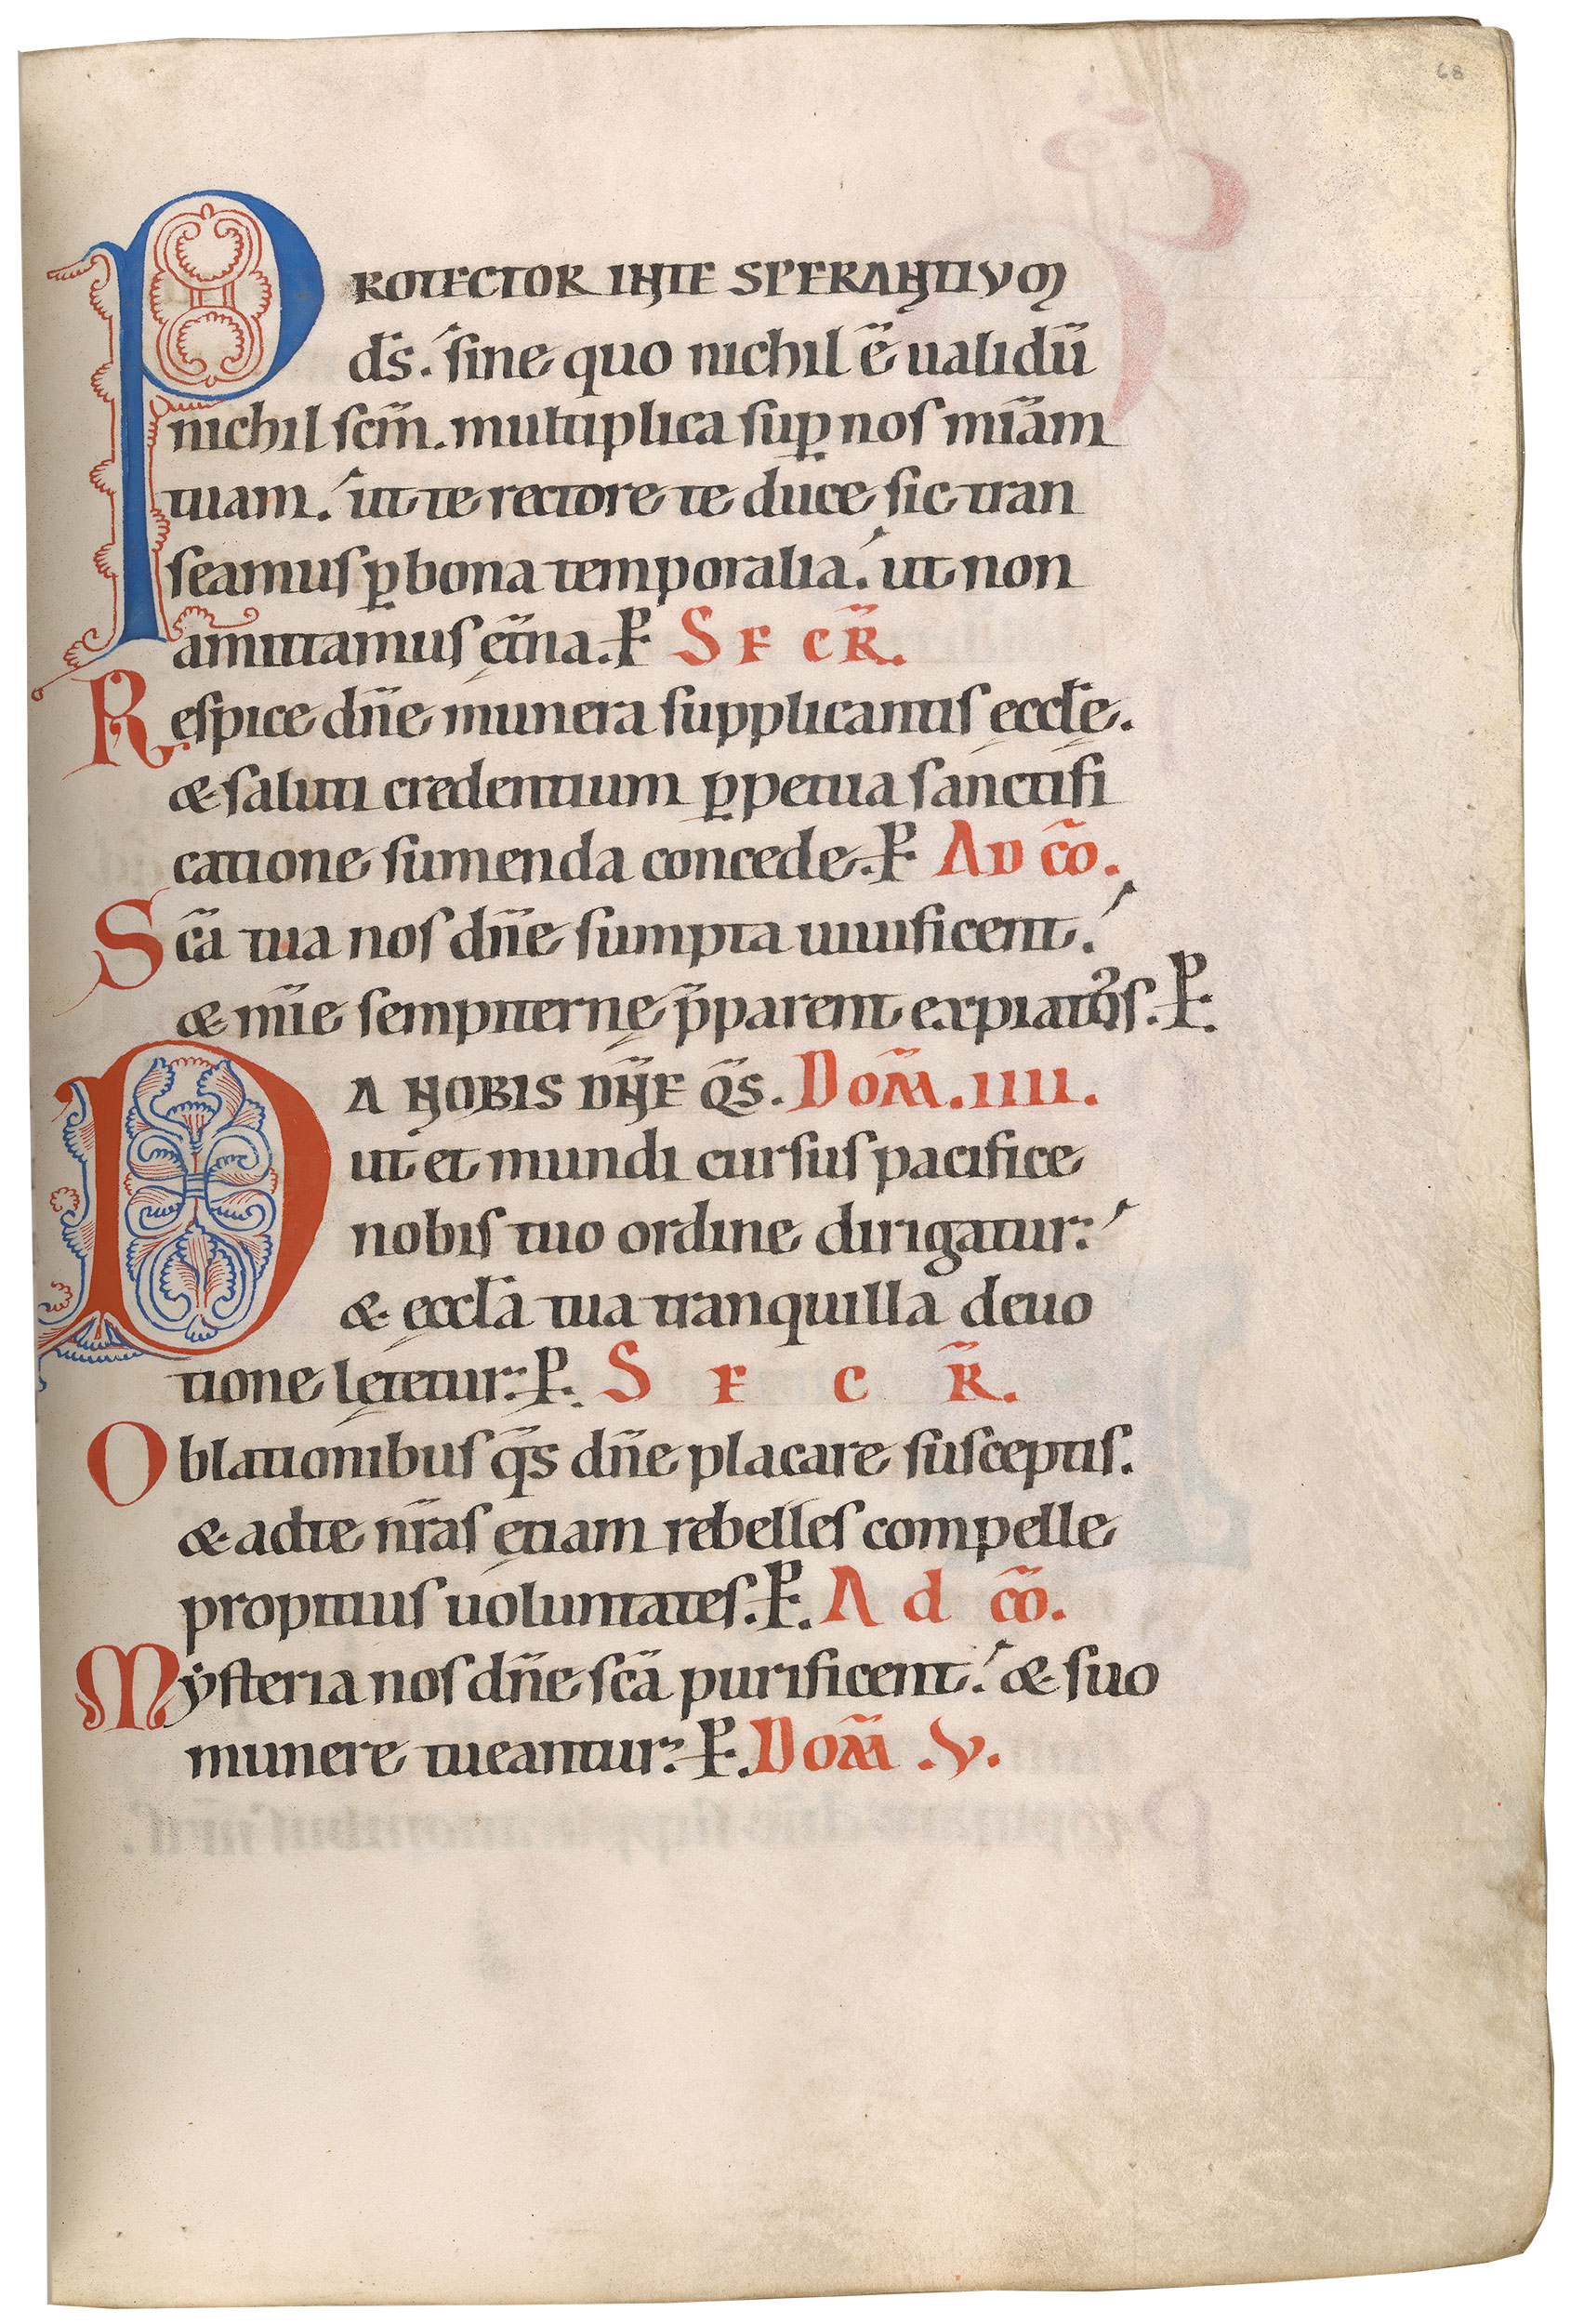 68
PROTECTOR IN TE SPERANTIVM
d̄s. sine quo nichil ē ualidū
nichil sc̄m. multiplica sup̱ nos mīam
tuam. ut te rectore te duce sic tran
seamus ꝑ bona temporalia. ut non
amittamus ęt̄na. P SECR̄.
Respice dn̄e munera supplicantis ęccl̄ę.
& saluti credentium ꝑpetua sanctifi
catione sumenda concede. P AD CŌ.
Sc̄a tua nos dn̄e sumpta uiuificent.
& mīe sempiternę p̄parent expiatos. P.
DA NOBIS DN̄E Q̄S. DOM̄. IIII.
ut et mundi cursus pacifice
nobis tuo ordine dirigatur:
& ęccl̄a tua tranquilla deuo
tione lętetur: P. S E C R̄.
Oblationibus q̄s dn̄e placare susceptis.
& ad te nr̄as etiam rebelles compelle
propitius uoluntates. P. Ad cō.
Mẏsteria nos dn̄e sc̄a purificent. & suo
munere tueantur: P. DOM̄. V.